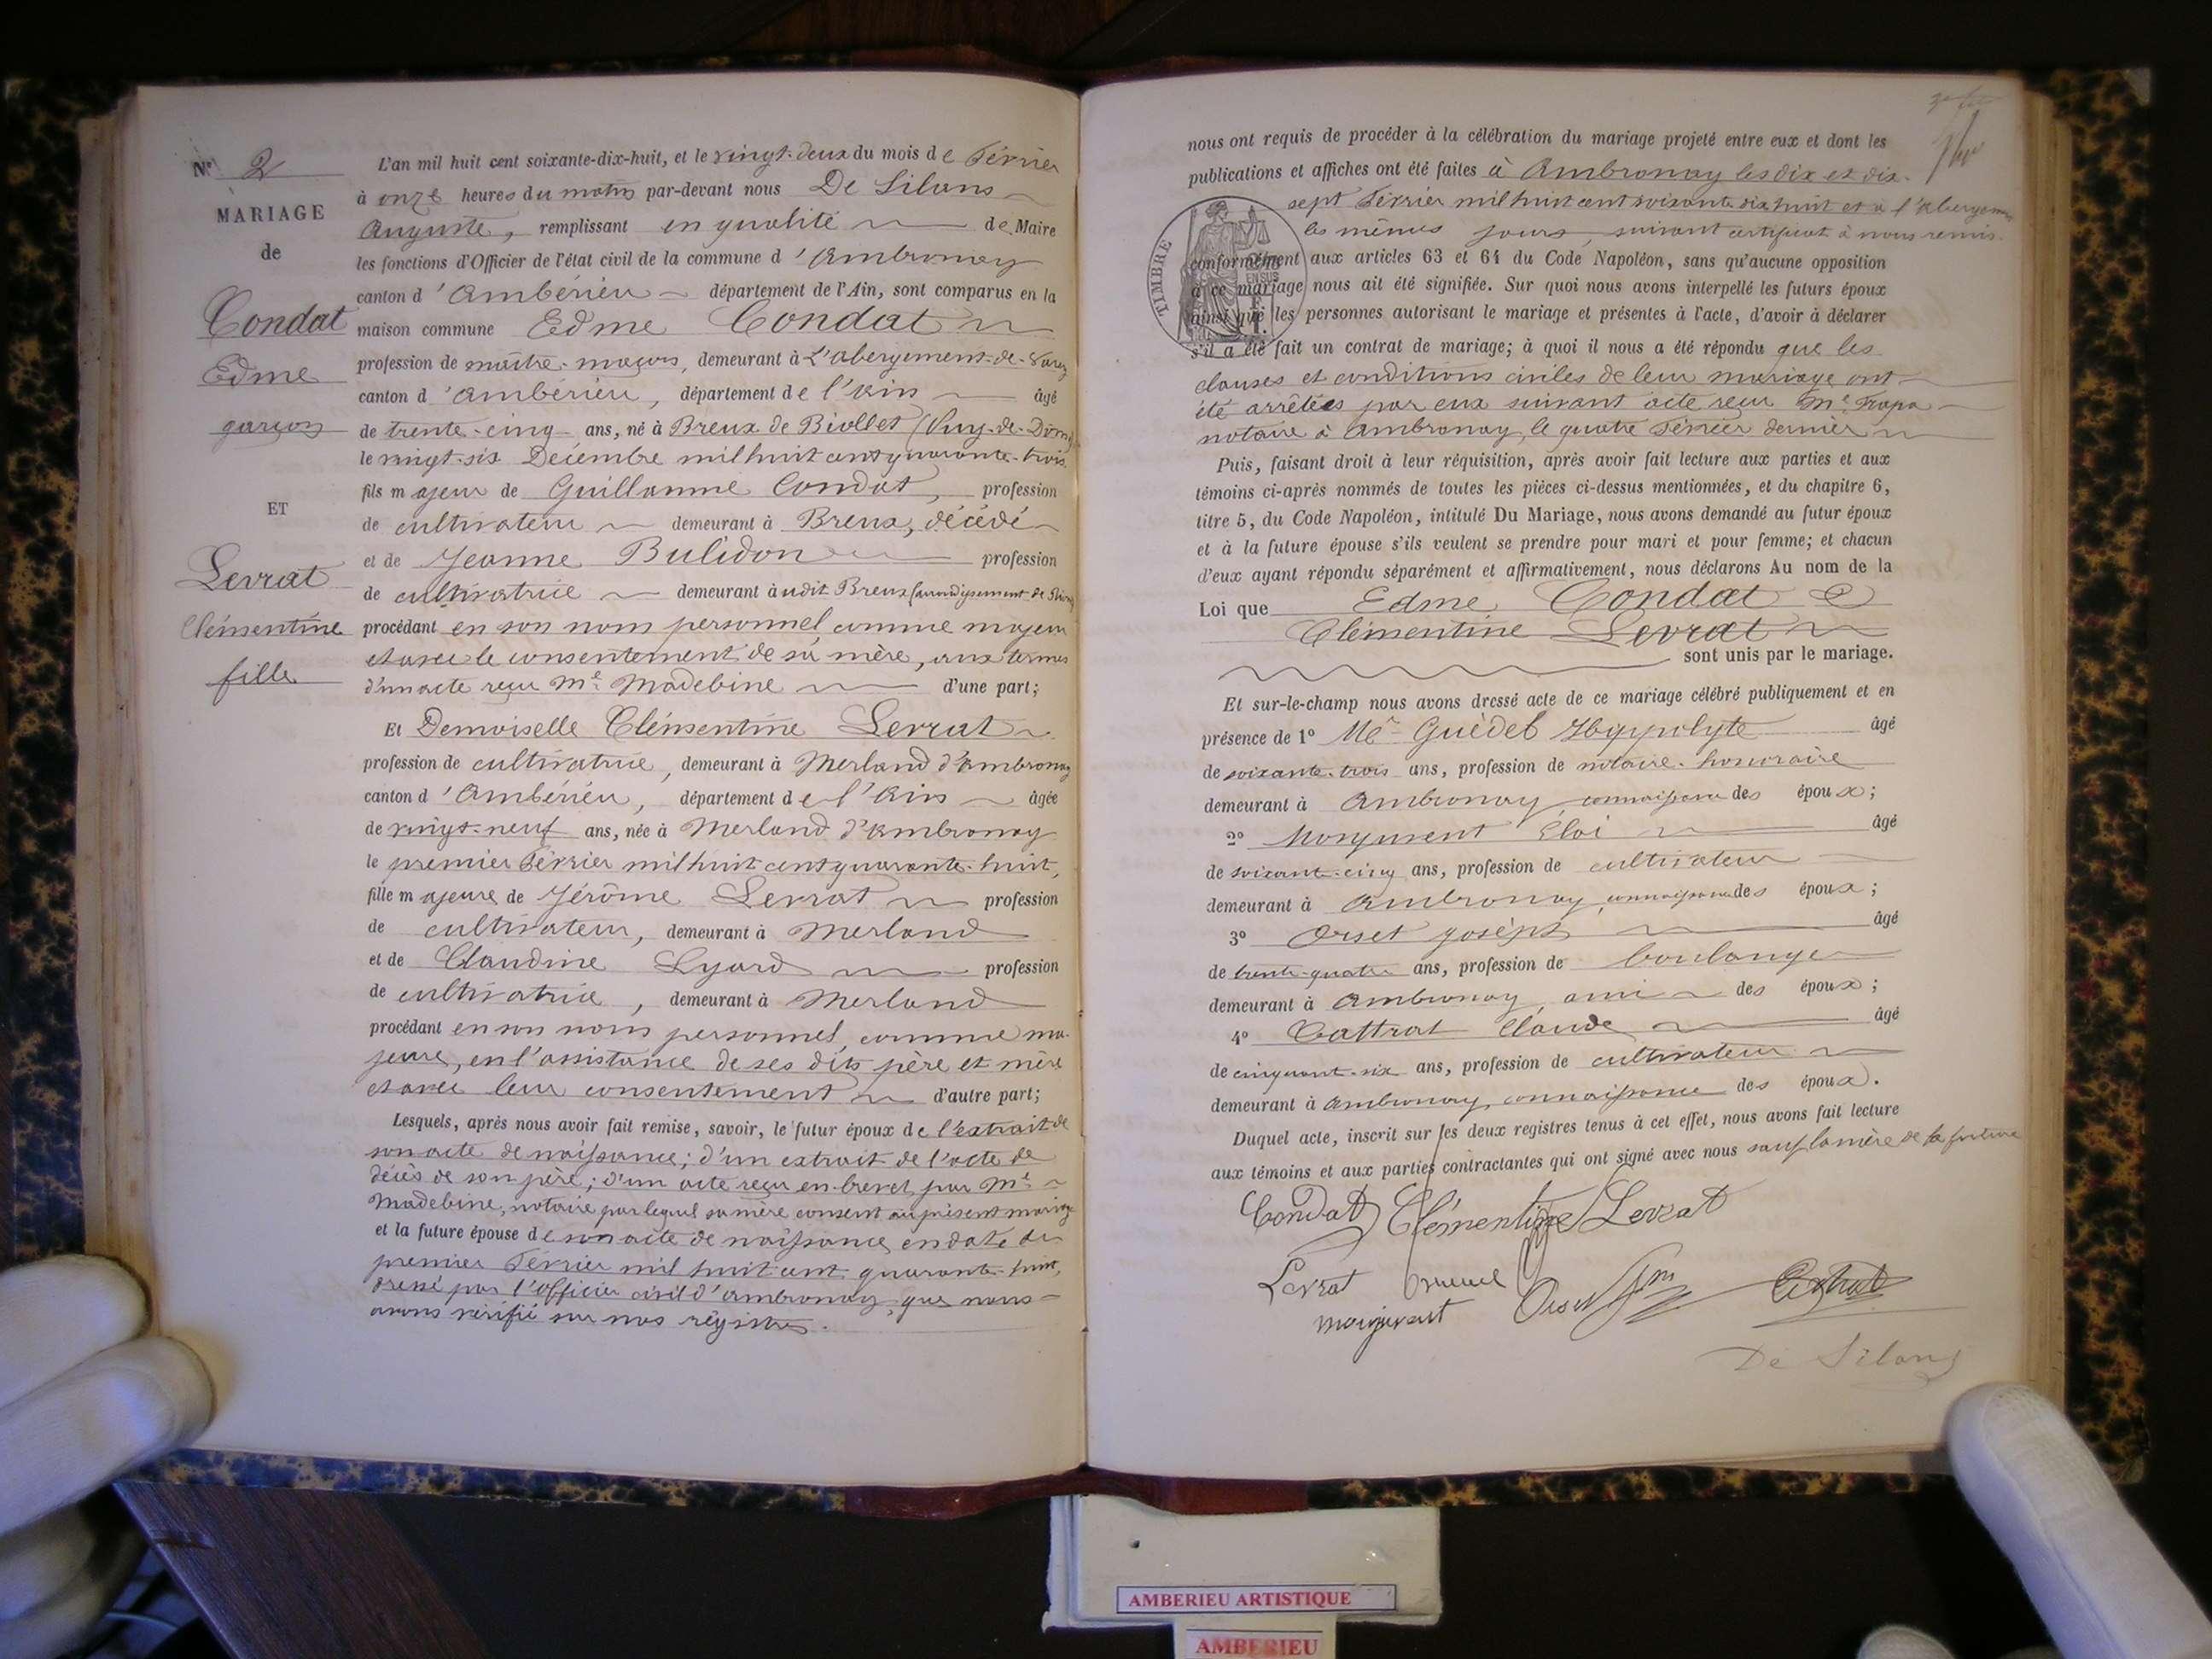 N° 2
MARIAGE
de
Condat
Edme
garçon
ET
Levrat
Clémentine
fille
L'an mil huit cent soixante-dix-huit, et le vingt-deux du mois de Février
à onze heures du matin par-devant nous De Silans
Auguste, remplissant en qualité de Maire
les fonctions d'Officier de l'état civil de la commune d'Ambronay
canton d'Ambérieu département de l'Ain, sont comparus en la
maison commune Edme Condat
profession de maître-maçon, demeurant à L'abergement-de-Varey
canton d'Ambérieu, département de l'Ain âgé
de trente-cinq ans, né à Breux de Biollet (Puy-de-Dôme)
le vingt-six Décembre mil huit cent quarante-trois
fils majeur de Guillaume Condat, profession
de cultivateur demeurant à Breux, décédé
et de Jeanne Bulidon profession
de cultivatrice demeurant audit Breux (arrondissement de Riom)
procédant en son nom personnel comme majeur
et avec le consentement de sa mère, aux termes
d'un acte reçu Me Madebine d'une part;
Et Demoiselle Clémentine Levrat
profession de cultivatrice, demeurant à Merland d'Ambronay
canton d'Ambérieu, département de l'Ain âgée
de vingt-neuf ans, née à Merland d'Ambronay
le premier Février mil huit cent quarante-huit,
fille majeure de Jérôme Levrat profession
de cultivateur, demeurant à Merland
et de Claudine Lyard profession
de cultivatrice, demeurant à Merland
procédant en son nom personnel, comme ma-
jeure, en l'assistance de ses dits père et mère
et avec leur consentement d'autre part;
Lesquels, après nous avoir fait remise, savoir, le futur époux de l'extrait de
son acte de naissance; d'un extrait de l'acte de
décès de son père; d'un acte reçu en brevet par Me
Madebine, notaire par lequel sa mère consent au présent mariage
et la future épouse de son acte de naissance en date du
premier Février mil huit cent quarante-huit,
dressé par l'officier civil d'Ambronay, que nous
avons vérifié sur nos régistres.
nous ont requis de procéder à la célébration du mariage projeté entre eux et dont les
publications et affiches ont été faites à Ambronay les dix et dix-
sept Février mil huit cent soixante dix huit et à l'Abergement
les mêmes jours, suivant certificat à nous remis.
TIMBRE
EN SUS
conformément aux articles 63 et 64 du Code Napoléon, sans qu'aucune opposition
à ce mariage nous ait été signifiée. Sur quoi nous avons interpellé les futurs époux
ainsi que les personnes autorisant le mariage et présentes à l'acte, d'avoir à déclarer
s'il a été fait un contrat de mariage; à quoi il nous a été répondu que les
clauses et conditions civiles de leur mariage ont
été arrêtées par eux suivant acte reçu Me Frapa
notaire à Ambronay, le quatre Février dernier
Puis, faisant droit à leur réquisition, après avoir fait lecture aux parties et aux
témoins ci-après nommés de toutes les pièces ci-dessus mentionnées, et du chapitre 6,
titre 5, du Code Napoléon, intitulé Du Mariage, nous avons demandé au futur époux
et à la future épouse s'ils veulent se prendre pour mari et pour femme; et chacun
d'eux ayant répondu séparément et affirmativement, nous déclarons Au nom de la
Loi que Edme Condat &
Clémentine Levrat
sont unis par le mariage.
Et sur-le-champ nous avons dressé acte de ce mariage célébré publiquement et en
présence de 1° Me Guédel Hyppolyte âgé
de soixante-trois ans, profession de notaire-honoraire
demeurant à Ambronay, connaissance des époux;
2° Monjuvent Eloi âgé
de soixante-cinq ans, profession de cultivateur
demeurant à Ambronay, connaissance des époux;
3° Orset Joséph âgé
de trente-quatre ans, profession de boulanger
demeurant à Ambronay, ami des époux;
4° Cattrat Claude âgé
de cinquante-six ans, profession de cultivateur
demeurant à Ambronay, connaissance des époux.
Duquel acte, inscrit sur les deux registres tenus à cet effet, nous avons fait lecture
aux témoins et aux parties contractantes qui ont signé avec nous sauf la mère de la future
Condat Clémentine Levrat
Levrat
monjuvent Orset
De Silans
AMBERIEU ARTISTIQUE
AMBERIEU